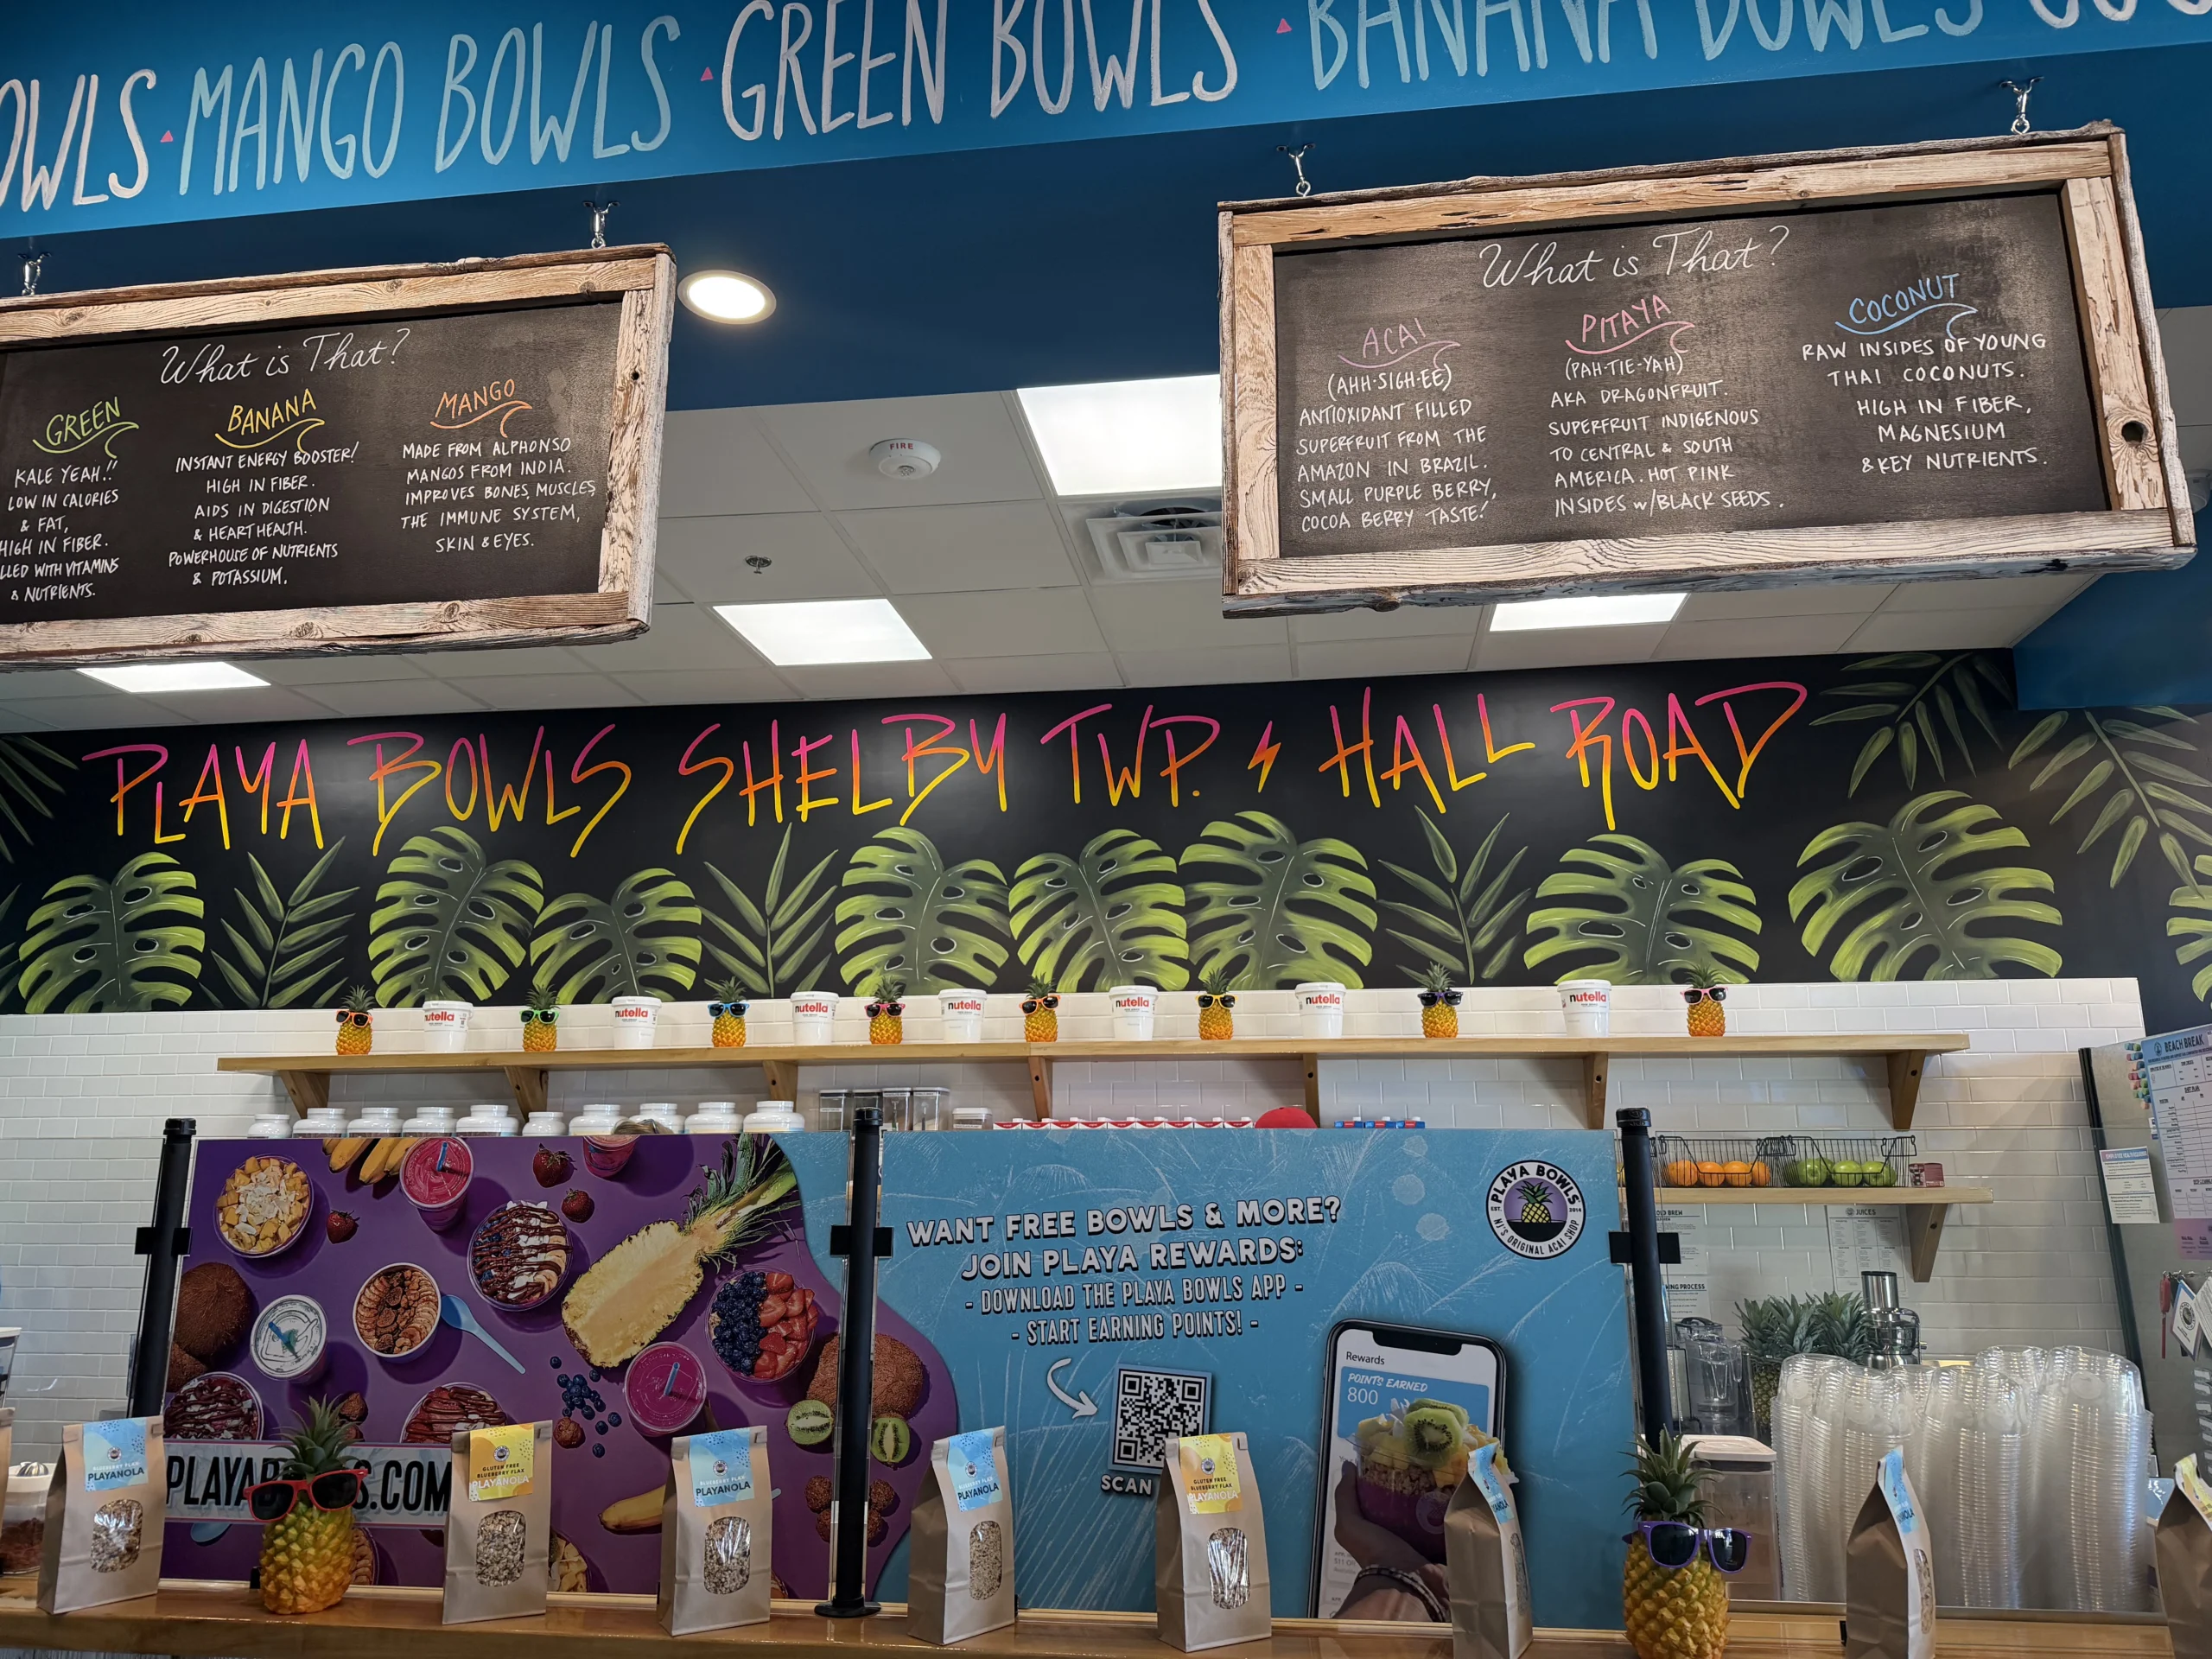 OWLS · MANGO BOWLS · GREEN BOWLS · BANANA BOWLS
What is That?
GREEN
KALE YEAH!!
LOW IN CALORIES
& FAT,
HIGH IN FIBER.
LLED WITH VITAMINS
& NUTRIENTS.
BANANA
INSTANT ENERGY BOOSTER!
HIGH IN FIBER.
AIDS IN DIGESTION
& HEART HEALTH.
POWERHOUSE OF NUTRIENTS
& POTASSIUM.
MANGO
MADE FROM ALPHONSO
MANGOS FROM INDIA.
IMPROVES BONES, MUSCLES,
THE IMMUNE SYSTEM,
SKIN & EYES.
What is That?
ACAI
(AHH-SIGH-EE)
ANTIOXIDANT FILLED
SUPERFRUIT FROM THE
AMAZON IN BRAZIL.
SMALL PURPLE BERRY,
COCOA BERRY TASTE!
PITAYA
(PAH-TIE-YAH)
AKA DRAGONFRUIT.
SUPERFRUIT INDIGENOUS
TO CENTRAL & SOUTH
AMERICA. HOT PINK
INSIDES w/BLACK SEEDS.
COCONUT
RAW INSIDES OF YOUNG
THAI COCONUTS.
HIGH IN FIBER,
MAGNESIUM
& KEY NUTRIENTS.
FIRE
PLAYA BOWLS SHELBY TWP. HALL ROAD
nutella
nutella
nutella
nutella
nutella
nutella
nutella
BEACH BREAK
WANT FREE BOWLS & MORE?
JOIN PLAYA REWARDS:
- DOWNLOAD THE PLAYA BOWLS APP -
- START EARNING POINTS! -
SCAN
PLAYA BOWLS
EST. 2014
NJ'S ORIGINAL ACAI SHOP
Rewards
POINTS EARNED
800
JUICES
OLD BREW
NING PROCESS
PLAYAB S.COM
BLUEBERRY FLAX
PLAYANOLA
GLUTEN FREE
BLUEBERRY FLAX
PLAYANOLA
BLUEBERRY FLAX
PLAYANOLA
BLUEBERRY FLAX
PLAYANOLA
GLUTEN FREE
BLUEBERRY FLAX
PLAYANOLA